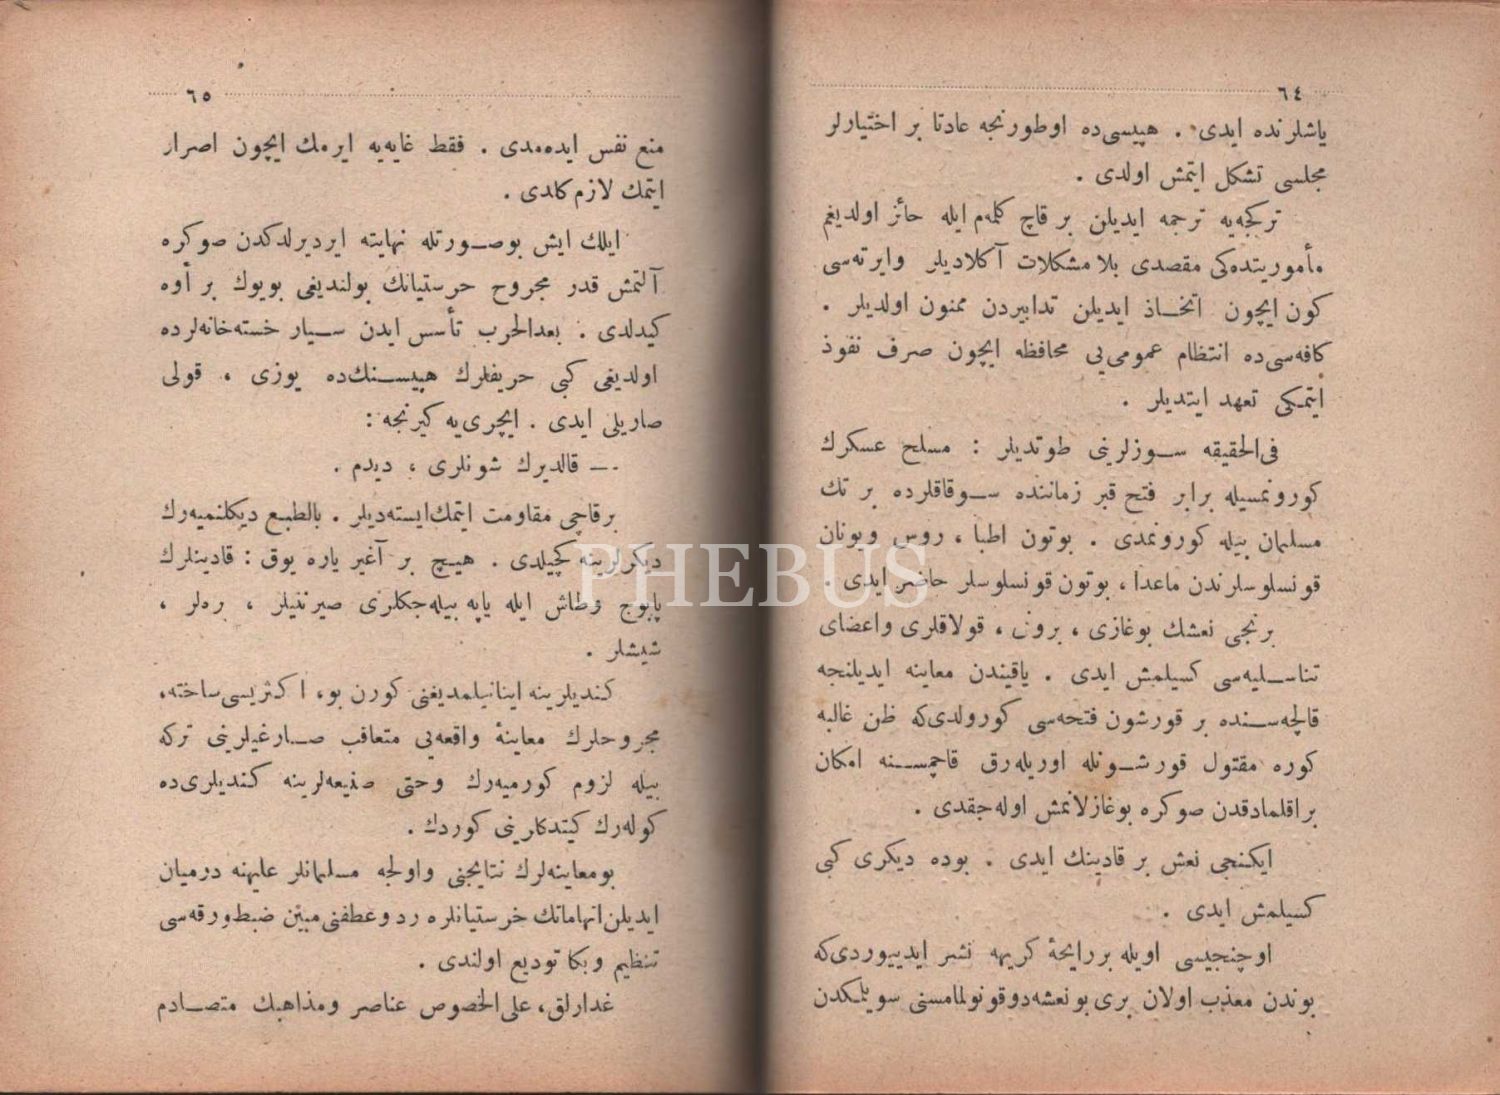 ٦٤
یاشلرنده ایدی . هپیسی‌ده اوطورنجه عادتا بر اختیارلر
مجلسی تشکل ایتمش اولدی .
ترکجه‌یه ترجمه ایدیلن بر قاچ کله‌م ایله حائز اولدیغم
مأموریتده‌کی مقصدی بلا مشکلات آکلادیلر وایرته‌سی
کون ایچون اتخاذ ایدیلن تدابیردن ممنون اولدیلر .
کافه‌سی‌ده انتظام عمومی‌یی محافظه ایچون صرف نفوذ
ایتمکی تعهد ایتدیلر .
فی‌الحقیقه سوزلرینی طوتدیلر : مسلح عسکرك
کورونمسیله برابر فتح قبر زماننده سوقاقلرده بر تك
مسلمان بیله کورونمدی . بوتون اطبا ، روس ویونان
قونسلوسلرندن ماعدا ، بوتون قونسلوسلر حاضر ایدی .
برنجی نعشك بوغازی ، برونی ، قولاقلری واعضای
تناسلیه‌سی کسیلمش ایدی . یاقیندن معاینه ایدیلنجه
قالچه‌سنده بر قورشون فتحه‌سی کورولدی‌که ظن غالبه
کوره مقتول قورشونله اوریله‌رق قاچمسنه امکان
براقلمادقدن صوکره بوغازلانمش اوله‌جقدی .
ایکنجی نعش بر قادینك ایدی . بوده دیکری کبی
کسیلمش ایدی .
اوچنجیسی اویله بررایحهٔ کریهه نشر ایدییوردی‌که
بوندن معذب اولان بری بو نعشه‌دوقونولمامسنی سویلمکدن
٦٥
منع نفس ایده‌مدی . فقط غایه‌یه ایرمك ایچون اصرار
ایتمك لازم‌کلدی .
ایلك ایش بوصورتله نهایته ایردیرلدکدن صوکره
آلتمش قدر مجروح خرستیانك بولندیغی بویوك بر أوه
کیدلدی . بعدالحرب تأسس ایدن سیار خسته‌خانه‌لرده
اولدیغی کبی حریفلرك هپیسنك‌ده یوزی ، قولی
صاریلی ایدی . ایچری‌یه کیرنجه :
— قالدیرك شونلری ، دیدم .
برقاچی مقاومت ایتمك‌ایسته‌دیلر . بالطبع دیکلنمیه‌رك
دیکرلرینه کچیلدی . هیچ بر آغیر یاره یوق : قادینلرك
پابوج وطاش ایله یاپه بیله‌جکلری صیرنتیلر ، ره‌لر ،
شیشلر .
کندیلرینه اینانیلمدیغنی کورن بو، اکثریسی‌ساخته،
مجروحلرك معاینهٔ واقعه‌یی متعاقب صارغیلرینی ترکه
بیله لزوم کورمیه‌رك وحتی صنیعه‌لرینه کندیلری‌ده
کوله‌رك کیتدکلرینی کوردك .
بومعاینه‌لرك نتایجنی واولجه مسلمانلر علیهنه درمیان
ایدیلن‌اتهاماتك خرستیانلره رد وعطفنی مبین ضبط‌ورقه‌سی
تنظیم وبکا تودیع اولندی .
غدارلق، علی‌الخصوص عناصر ومذاهبك متصادم
PHEBUS